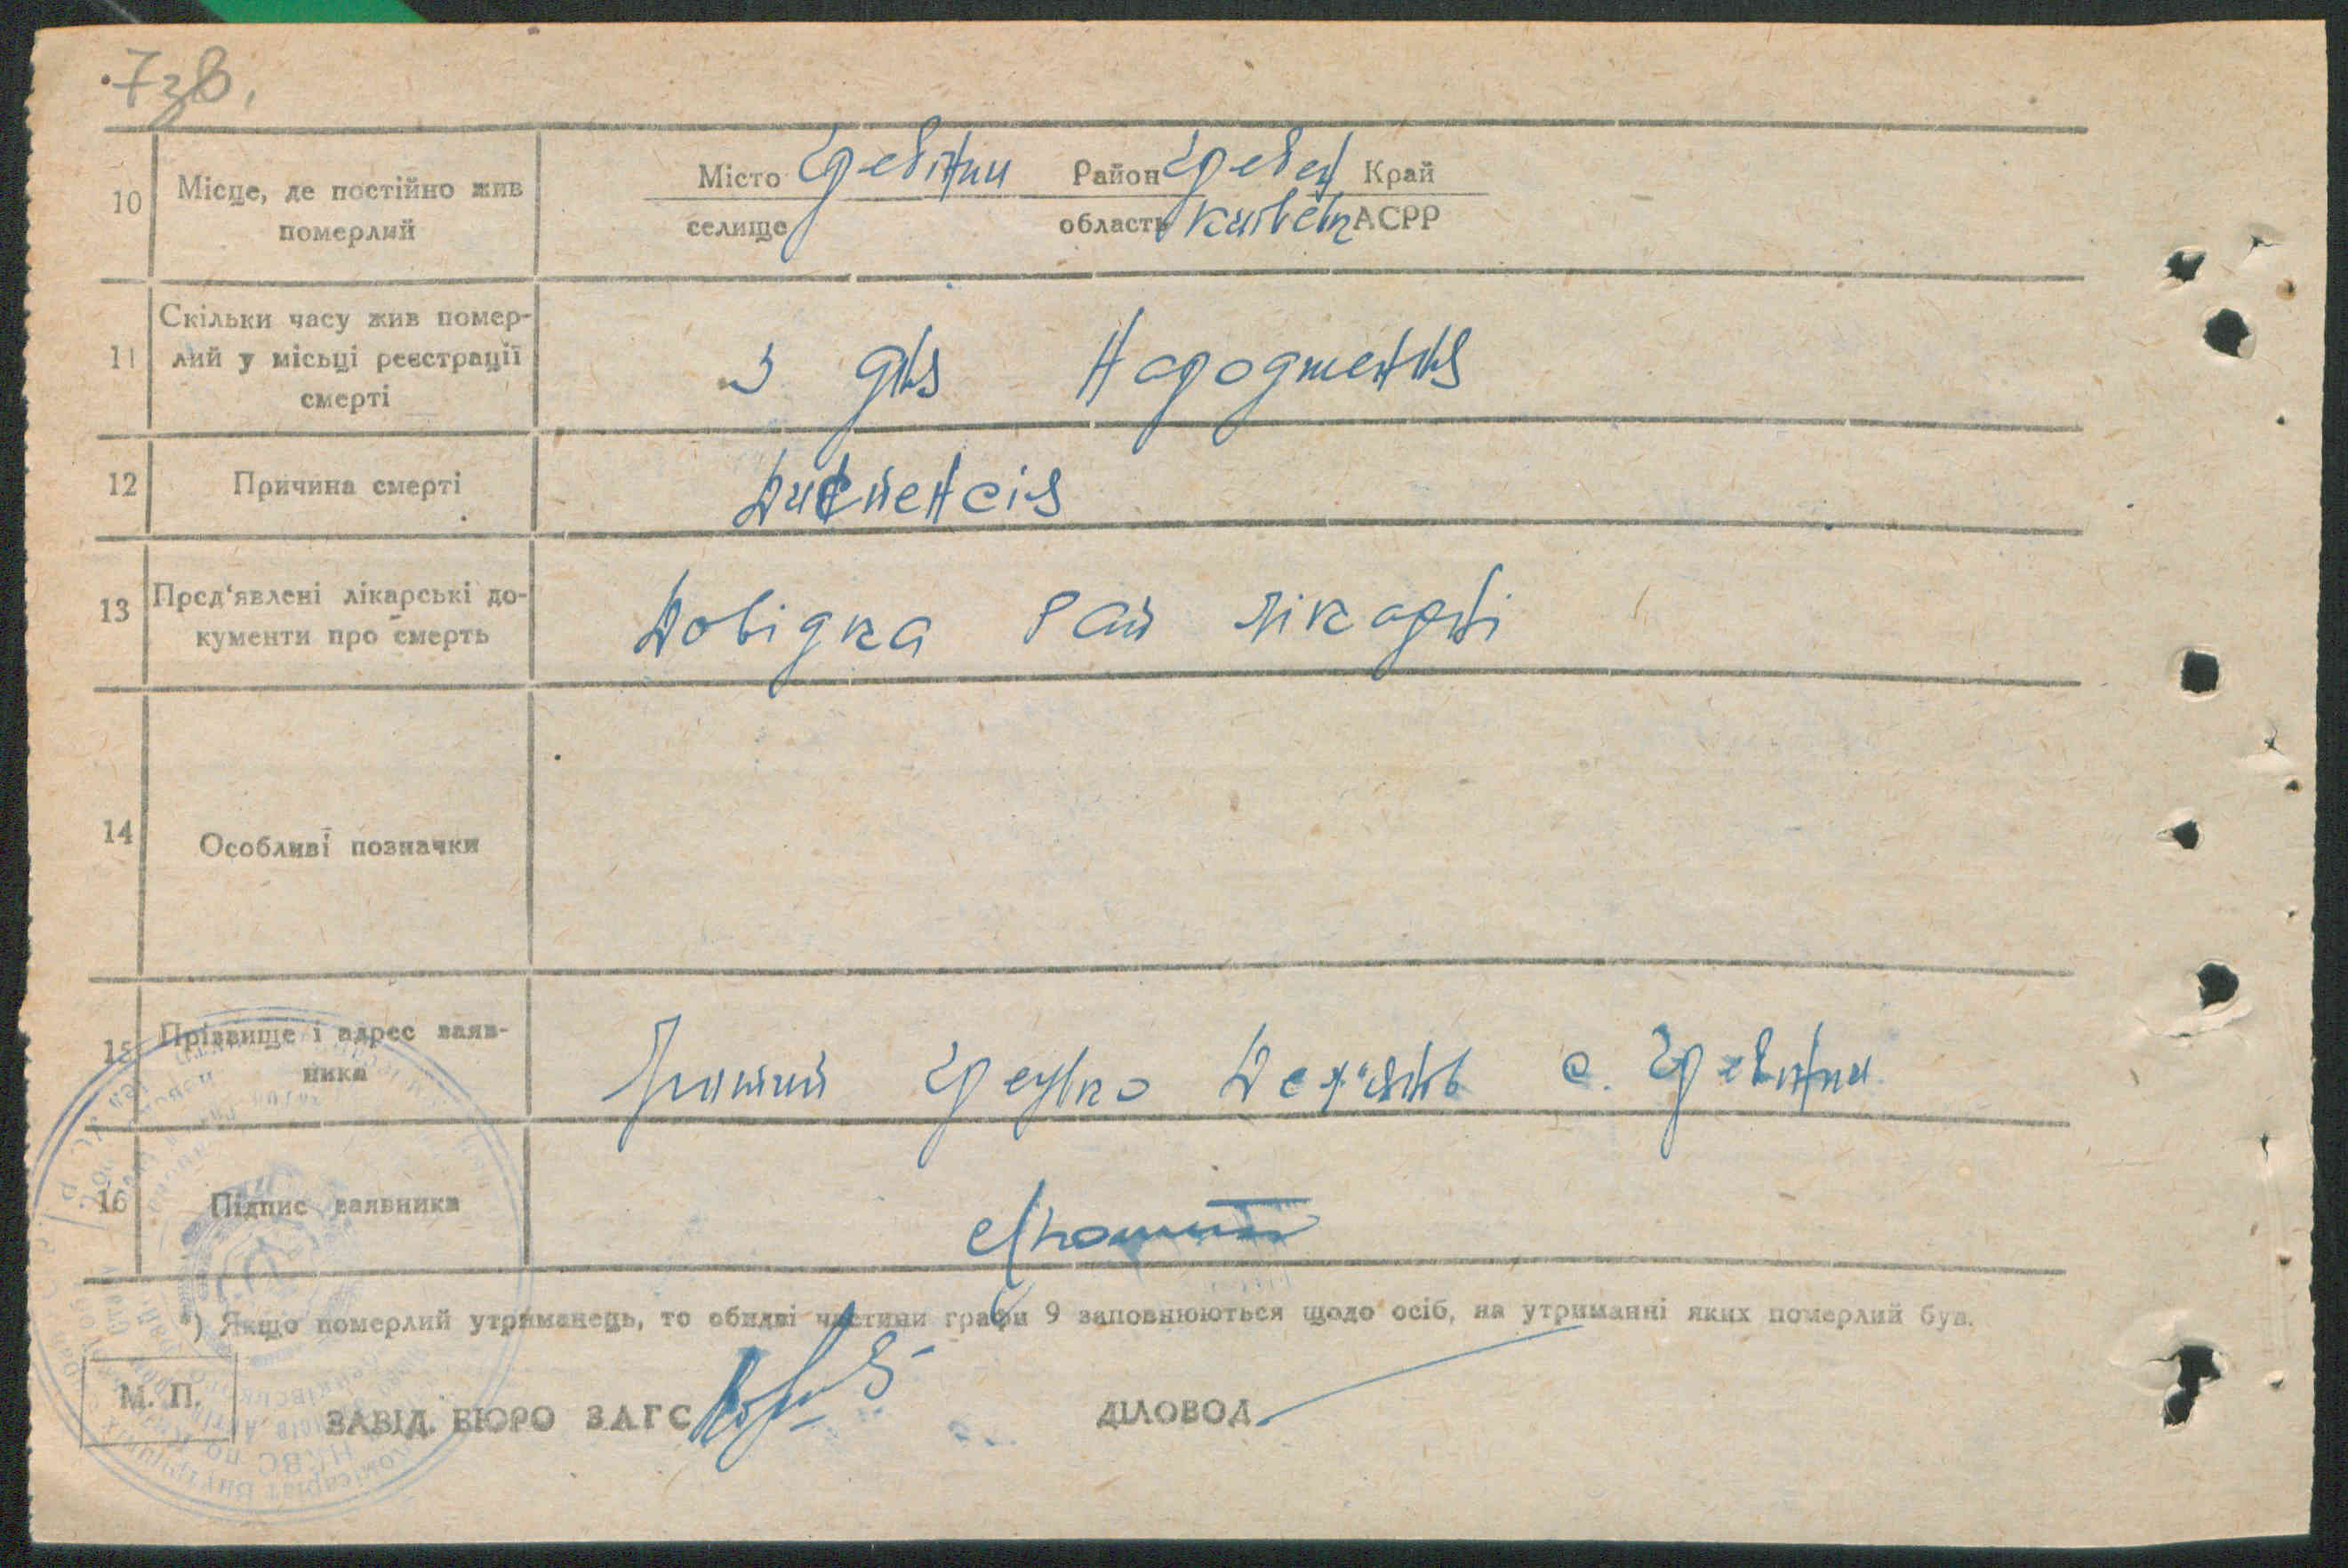 7зв.
10 Місце, де постійно жив померлий
Місто Гребінки Район Гребен Край
селище область Київськ АСРР
11 Скільки часу жив помер-
лий у місьці реєстрації
смерті
з дня народження
12 Причина смерті Диспенсія
13 Пред'явлені лікарські до-
кументи про смерть
Довідка Рай лікарні
14 Особливі позначки
15 Прізвище і адрес заяв-
ника
Дем'ян с. Гребінки
16 Підпис заявника
*) Якщо померлий утриманець, то обидві частини графи 9 заповнюються щодо осіб, на утриманні яких померлий був.
М. П.
ЗАВІД. БЮРО ЗАГС ДІЛОВОД